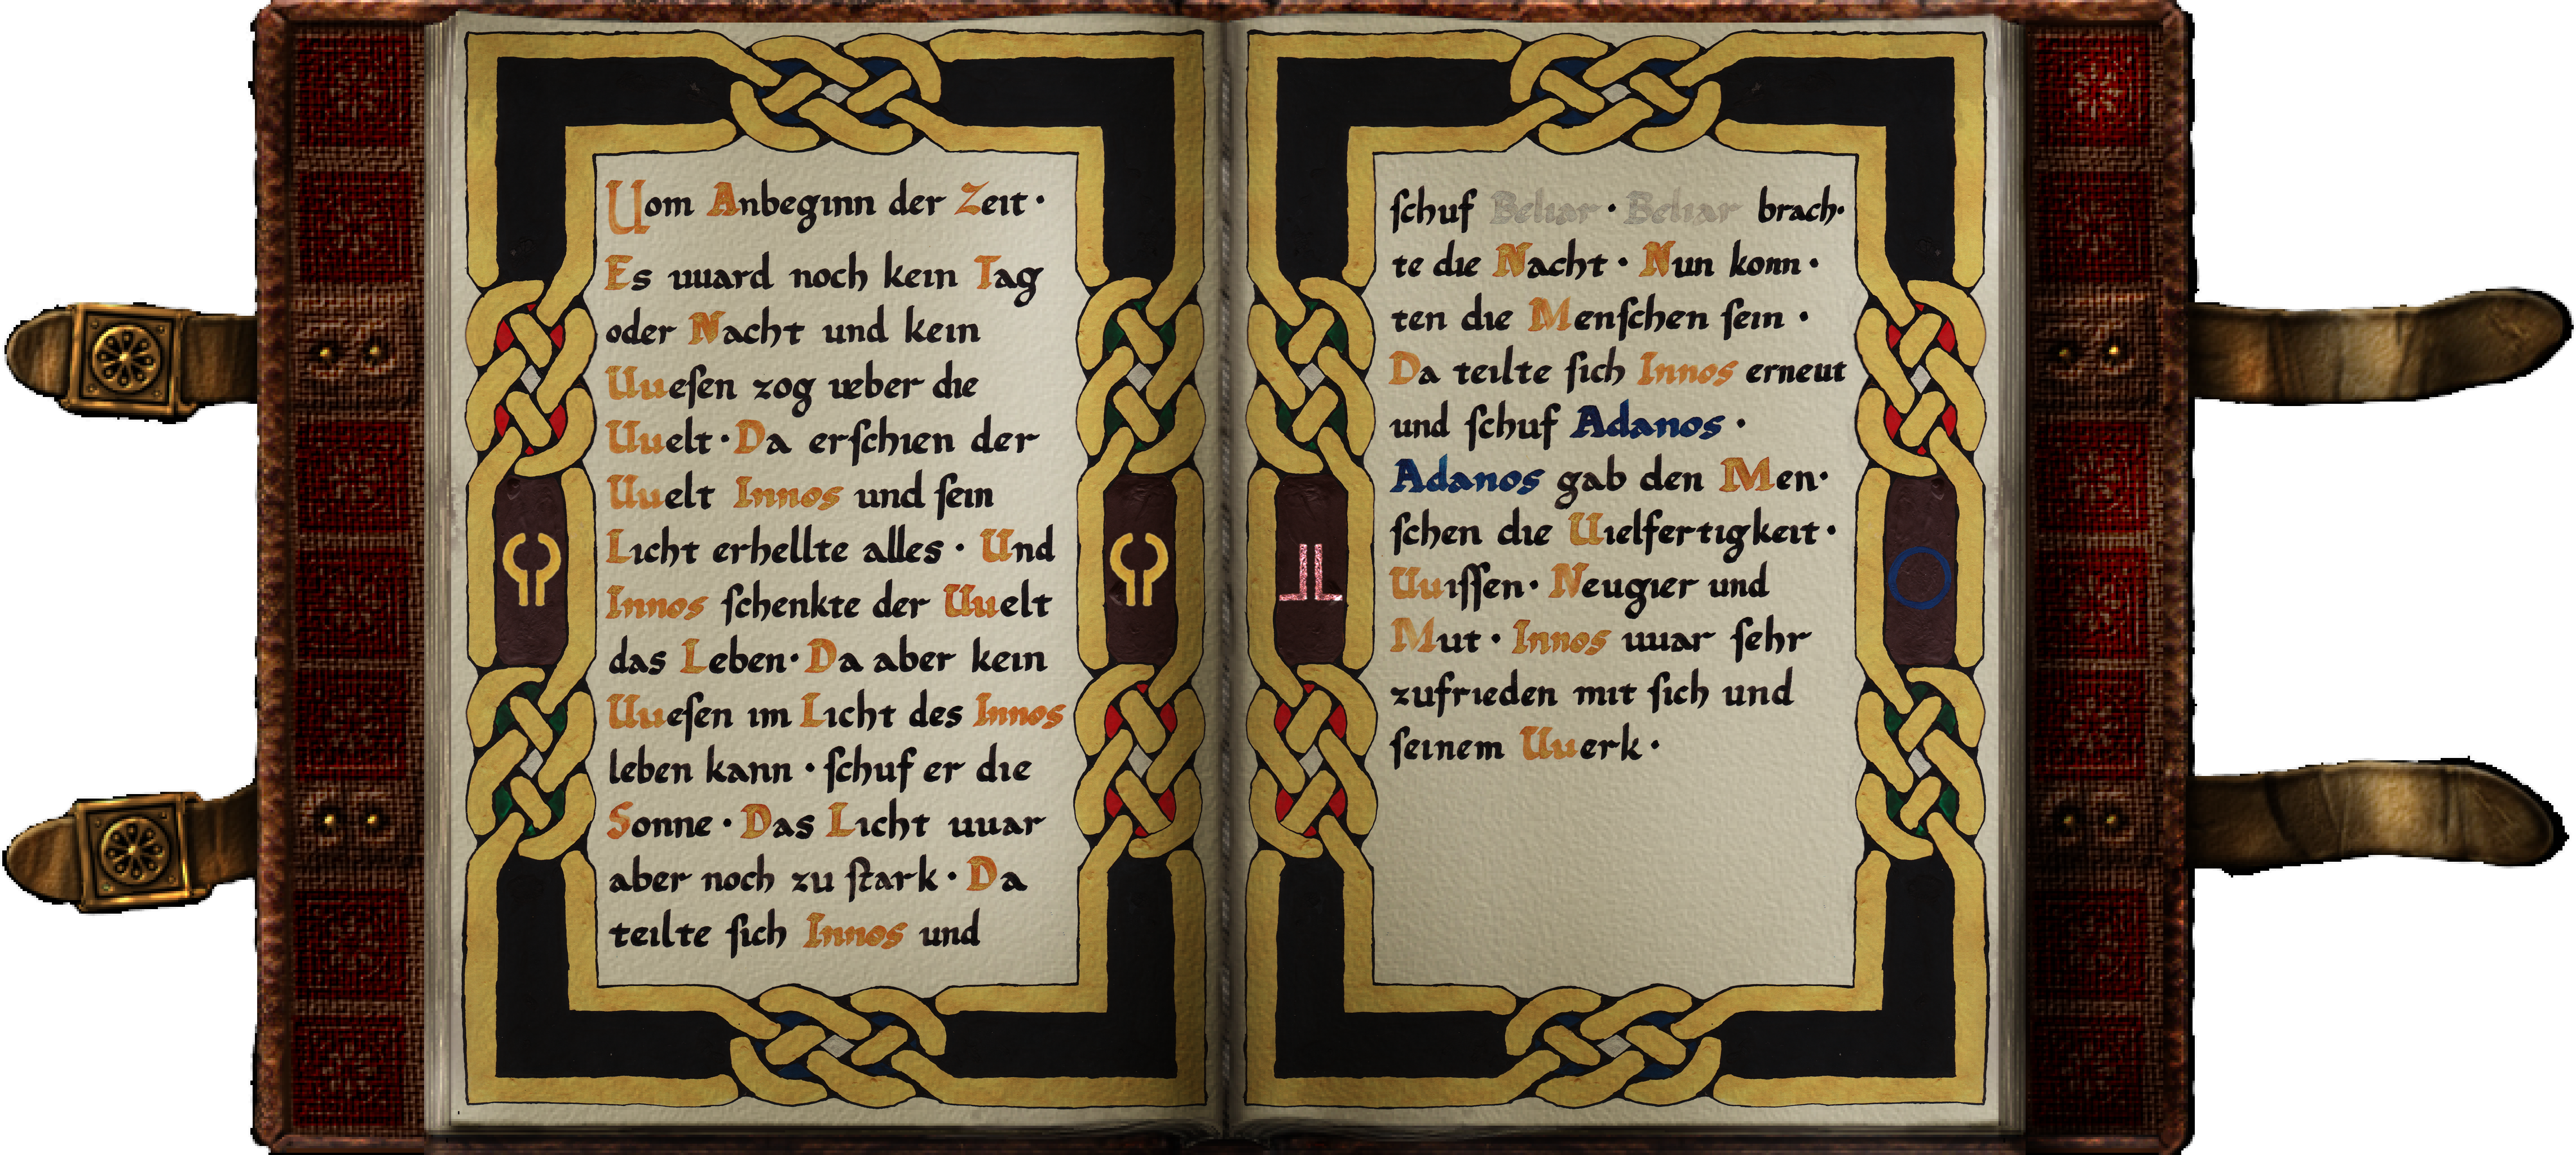 Uom Anbeginn der Zeit·
Es uuard noch kein Tag
oder Nacht und kein
Uuesen zog ueber die
Uuelt· Da erschien der
Uuelt Innos und sein
Licht erhellte alles · Und
Innos schenkte der Uuelt
das Leben· Da aber kein
Uuesen im Licht des Innos
leben kann · schuf er die
Sonne · Das Licht uuar
aber noch zu stark · Da
teilte sich Innos und
schuf Beliar · Beliar brach·
te die Nacht · Nun konn·
ten die Menschen sein ·
Da teilte sich Innos erneut
und schuf Adanos ·
Adanos gab den Men·
schen die Uielfertigkeit·
Uuissen· Neugier und
Mut · Innos uuar sehr
zufrieden mit sich und
seinem Uuerk ·